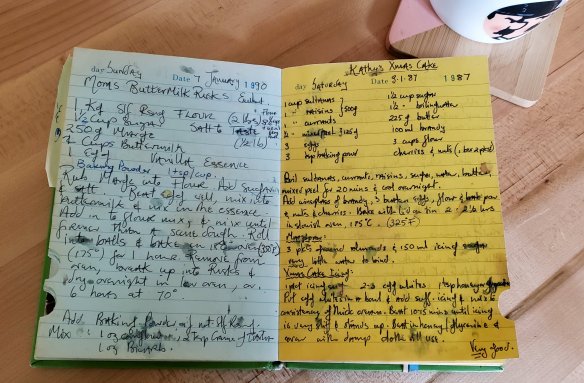 day Sunday Date 7 January 1990
Moms ButterMilk Rusks
1 Kg Slf Rsng Flour (2 lbs)
1/2 cup Sugar Salt to taste
250g Marge (1/2 lb)
2 Cups Buttermilk
1 egg Vanilla Essence
Baking Powder 1 tsp/cup.
Rub Marge into flour. Add sugar
& salt. Beat egg, mix into
buttermilk & mix in the essence
Add in to flour mix, & mix until
firmer than a scone dough. Roll
into balls & bake in oven (350°F)
(175°) for 1 hour. Remove from
oven, break up into Rusks &
dry overnight in low oven, or
6 hours at 70°
Add Baking Powder, if not Slf Rsng.
Mix 1 oz 2 tsp Cream of Tartar
1 oz
Kathy's Xmas Cake
day Saturday 3.1.87 1987
1 cup sultanas 1 1/2 cup sugar
1 " raisins 500g 1 1/2
1 " currants 225g butter
1/2 mixed peel 125g 100ml brandy
3 eggs 3 cups flour
3 tsp baking powd cherries & nuts
Boil sultanas, currants, raisins, sugar, water, butter,
mixed peel for 20 mins & cool overnight.
Add wineglass of brandy, 3 beaten eggs, flour & bak powd
& nuts & cherries. Bake with lid on tin 2 - 2 1/2 hrs
in slowish oven, 175°C. (325°F)
Marzipan:
3 pkts ground almonds & 150 ml icing sugar
egg white to bind.
Xmas Cake Icing:
1 pkt icing sugar 2-3 egg whites. 1 tsp honey/glycerine
Put egg whites in a bowl & add suff. icing & mix to
consistency of thick cream. Beat 10-15 mins until icing
is very stiff & stands up. Beat in honey/glycerine &
cover with damp cloth till use.
Very good.